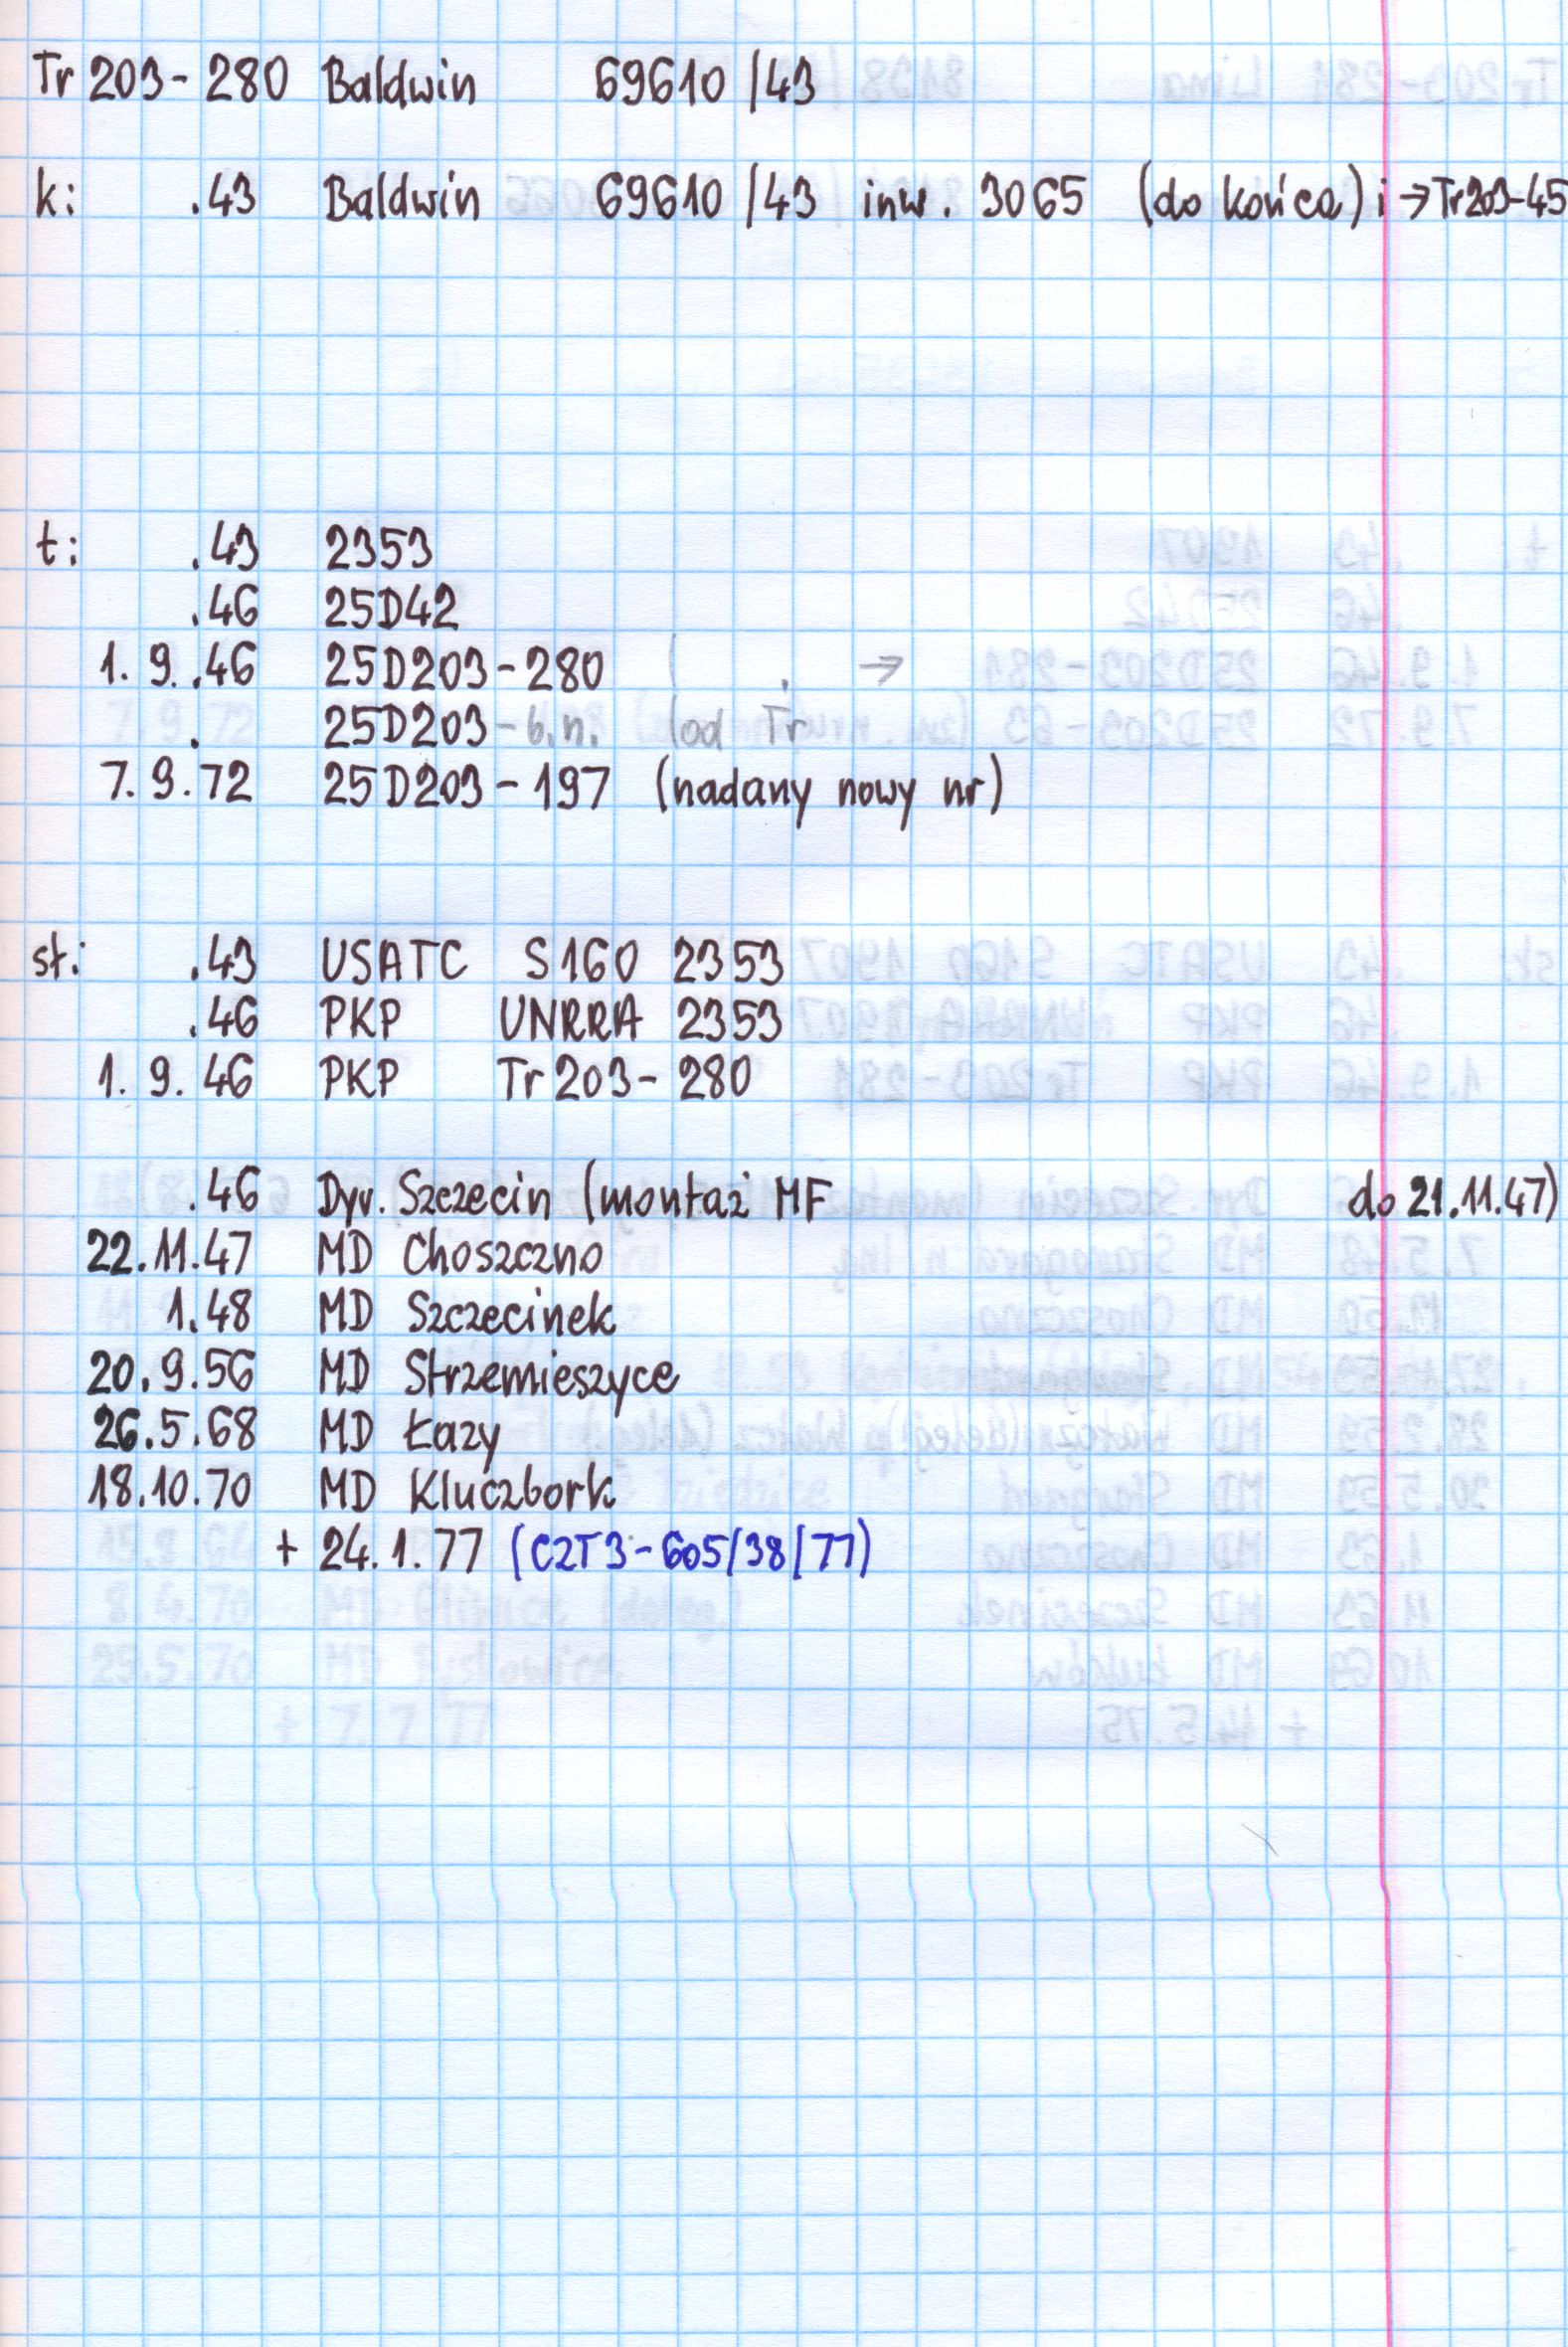 Tr 203-280 Baldwin 69610/43
k: .43 Baldwin 69610/43 inw. 3065 (do końca) i → Tr203-45
t: .43 2353
.46 25D42
1.9.46 25D203-280 ( . →
. 25D203-b.n. (od Tr
7.9.72 25D203-197 (nadany nowy nr)
st: .43 USATC S160 2353
.46 PKP UNRRA 2353
1.9.46 PKP Tr203-280
.46 Dyr. Szczecin (montaż MF do 21.11.47)
22.11.47 MD Choszczno
1.48 MD Szczecinek
20.9.56 MD Strzemieszyce
26.5.68 MD Łazy
18.10.70 MD Kluczbork
+ 24.1.77 (CZT3-605/38/77)